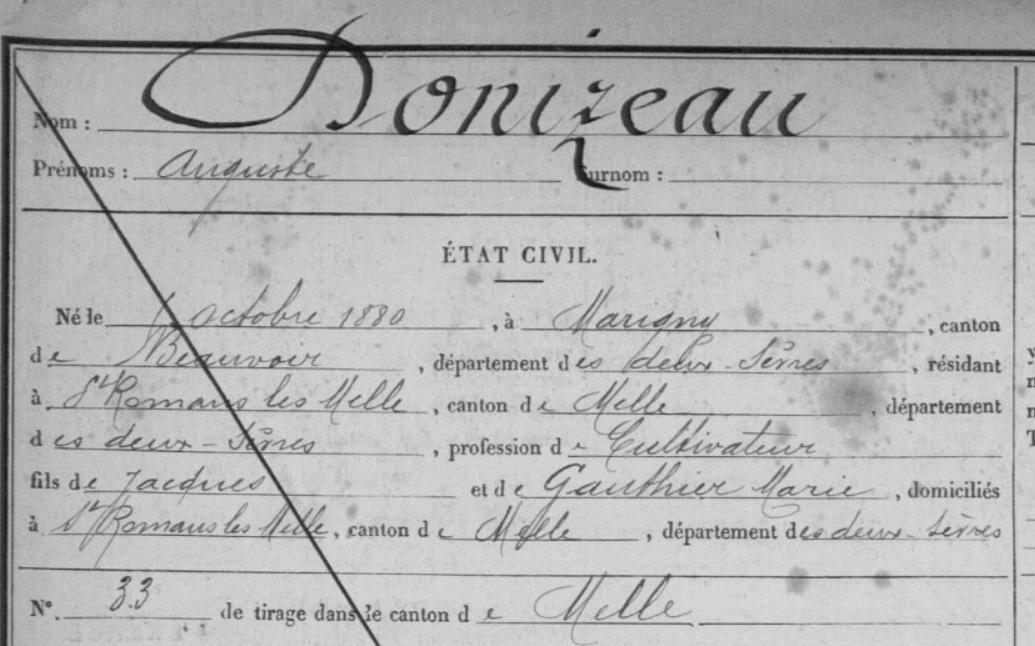 Nom : Donizeau
Prénoms : Auguste Surnom :
ÉTAT CIVIL.
Né le 6 octobre 1880, à Marigny, canton
de Beauvoir, département des deux-Sèvres, résidant
à St Romans les Melle, canton de Melle, département
des deux-Sèvres, profession de Cultivateur
fils de Jacques et de Gauthier Marie, domiciliés
à St Romans les Melle, canton de Melle, département des deux-Sèvres
N° 33 de tirage dans le canton de Melle